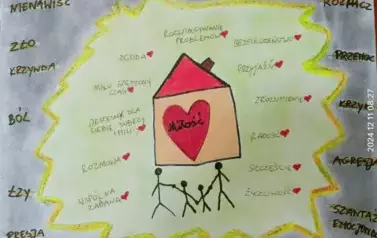 NIENAWIŚĆ
ROZPACZ
ROZWIĄZYWANIE
PROBLEMÓW
ZŁO
ZGODA
BEZPIECZEŃSTWO
PRZEMOC
KRZYWDA
PRZYJAŹŃ
MIŁO SPĘDZONY
CZAS
ZROZUMIENIE
KRZYK
BÓL
JESTEŚMY DLA
SIEBIE DOBRZY
I MILI
Miłość
RADOŚĆ
ROZMOWA
SZCZĘŚCIE
AGRESJA
ŁZY
WSPÓLNA
ZABAWA
ŻYCZLIWOŚĆ
SZANTAŻ
EMOCJONALNY
PRESJA
2024 12 11 08:27